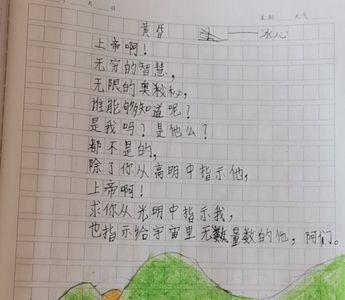 月 日 星期 天气
黄昏 ——冰心
上帝啊！
无穷的智慧，
无限的奥秘，
谁能够知道呢？
是我吗？是他么？
都不是的，
除了你从高明中指示他，
上帝啊！
求你从光明中指示我，
也指示给宇宙里无数量数的他，阿们。